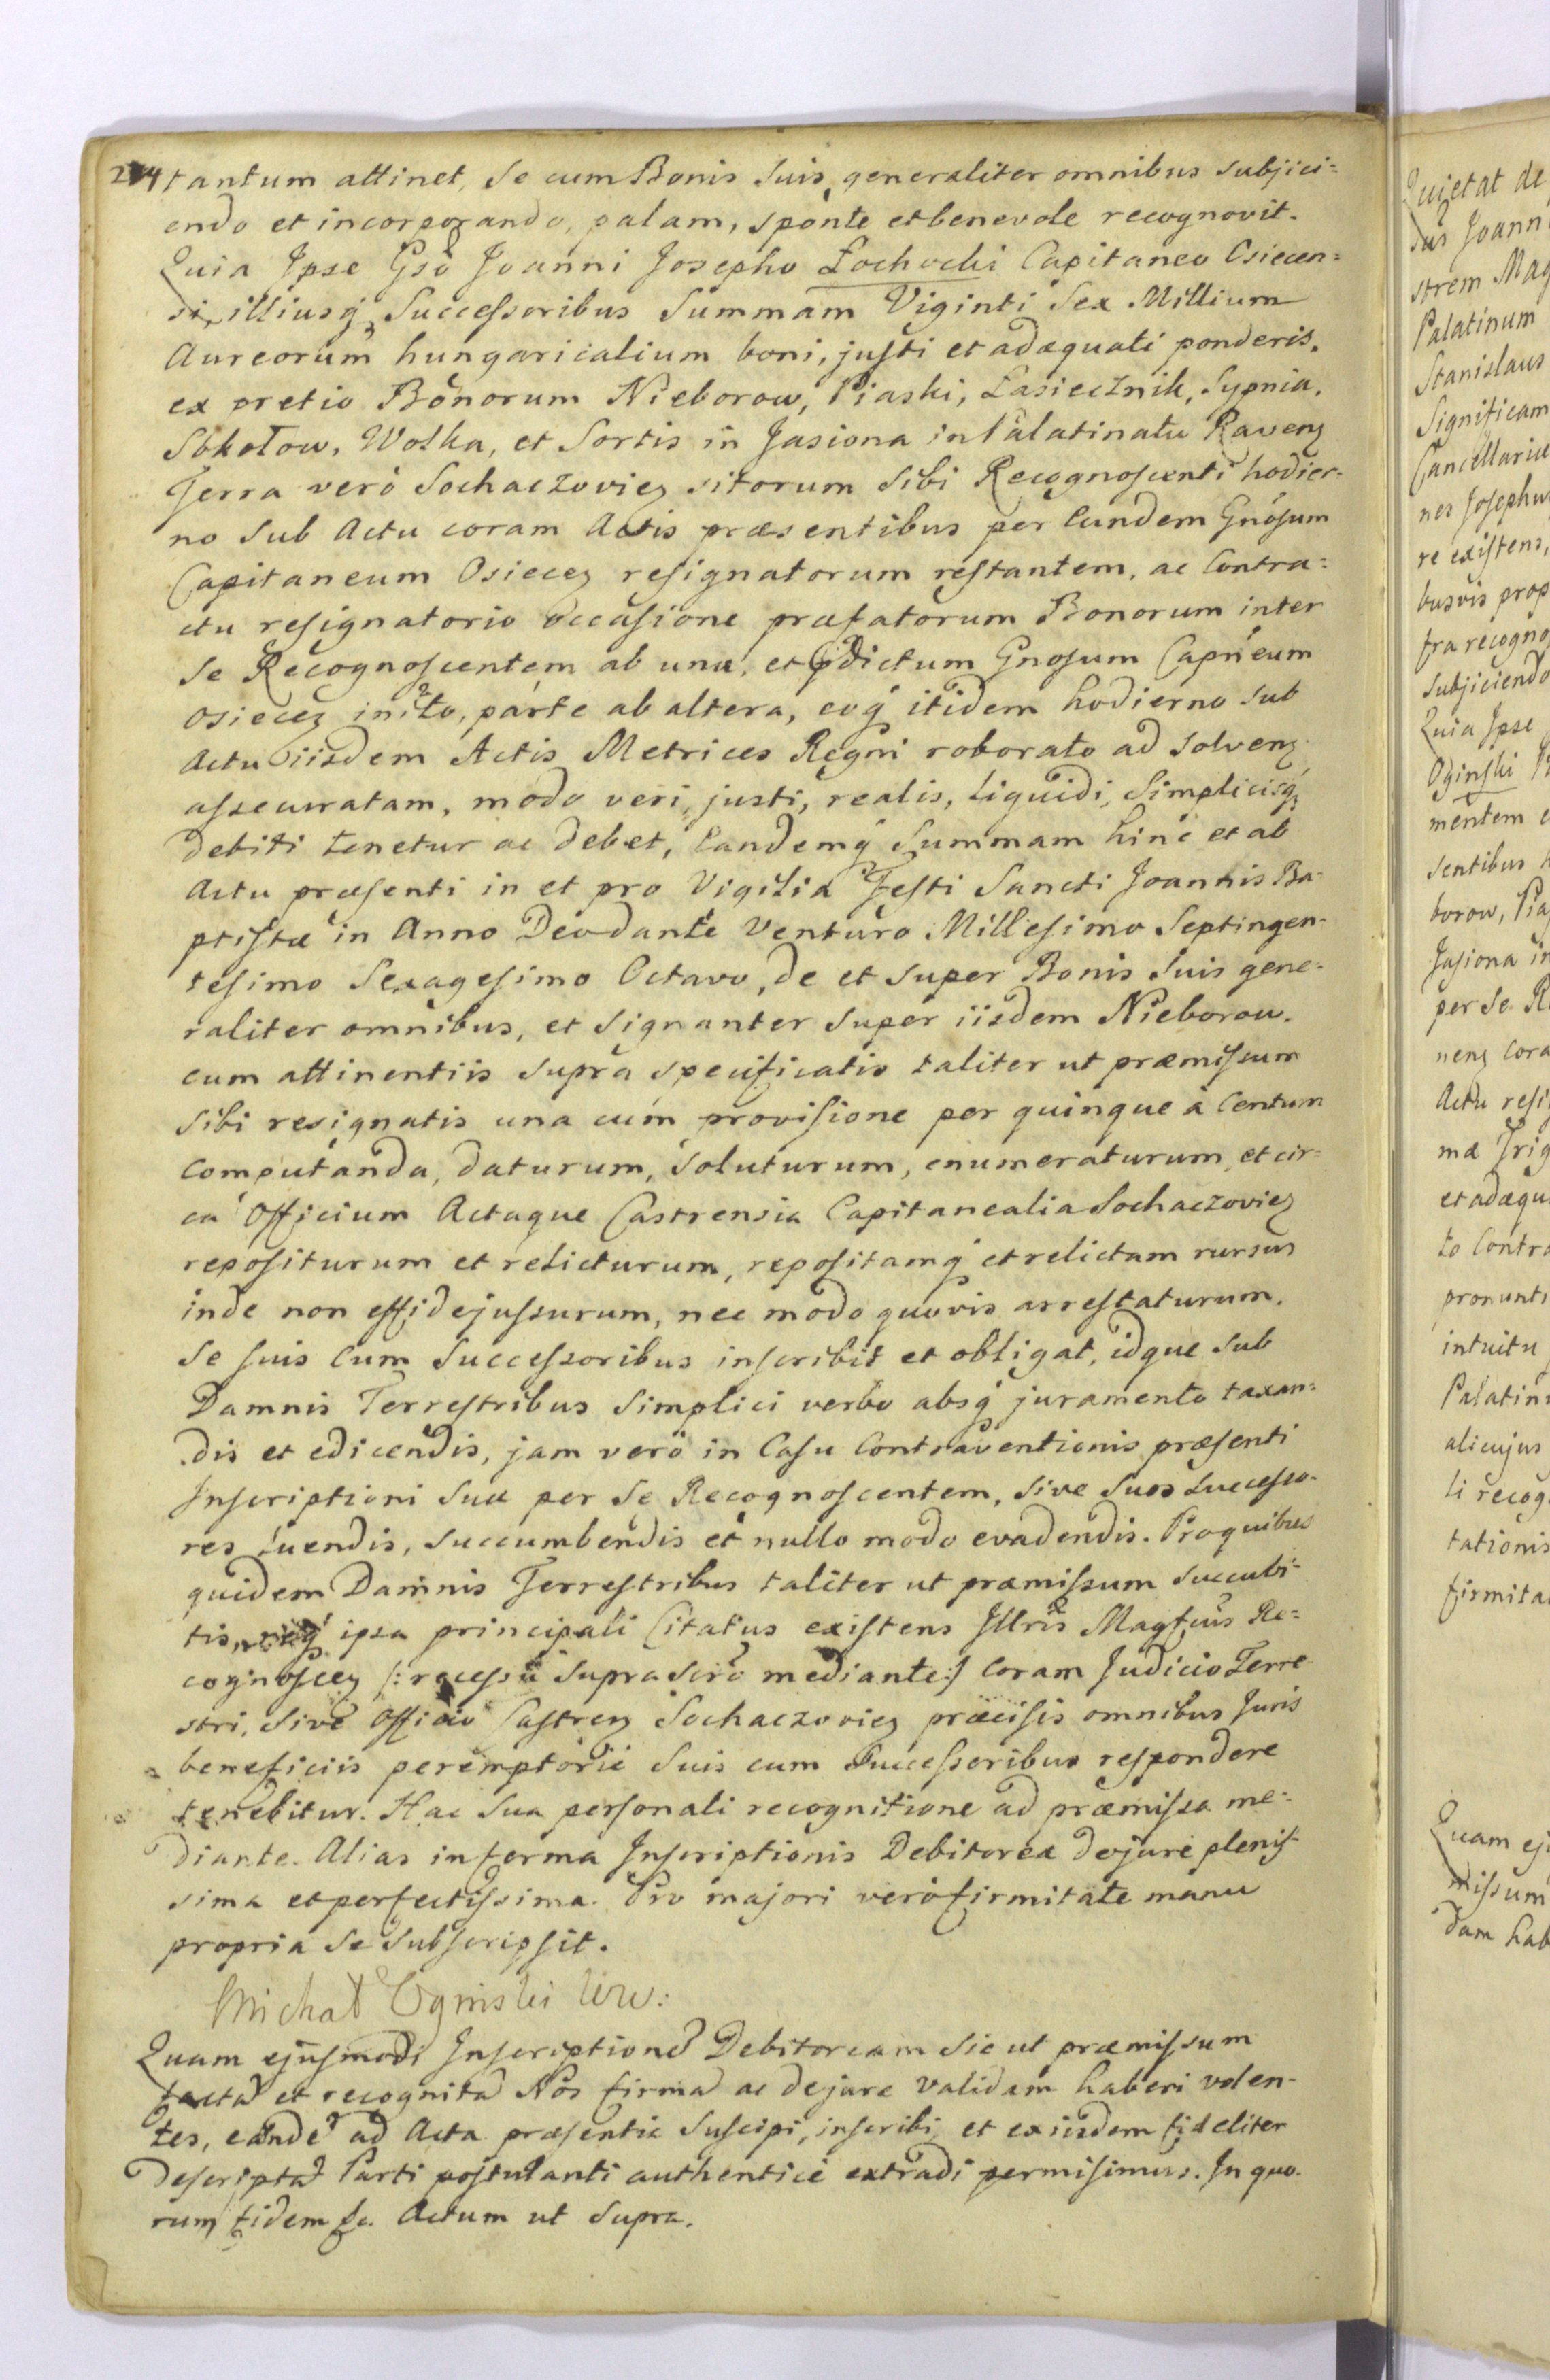 214
tantum attinet, Se cum Bonis Suis generaliter omnibus subjici=
endo et incorporando, palam, sponte et benevole recognovit.
Quia Ipse Gso Joanni Josepho Łochocki Capitaneo Osiecen=
si, illiusq Successoribus Summam Viginti Sex Millium
Aureorum hungaricalium boni, justi et adæquati ponderis,
ex pretio Bonorum Nieborow, Piaski, Łasiecznik, Sypnia,
Sokołow, Wolka, et Sortis in Jasiona in Palatinatu Ravenz
Terra verò Sochaczoviez sitorum Sibi Recognoscenti hodier-
no Sub Actu coram Actis præsentibus per Eundem Gnosum
Capitaneum Osiecez resignatorum restantem, ac Contra=
ctu resignatorio occasione præfatorum Bonorum inter
Se Recognoscentem ab una, et pdictum Gnosum Capneum
Osiecez inito, parte ab altera, eoq itidem hodierno Sub
Actu iisdem Actis Metrices Regni roborato ad Solvenz
assecuratam, modo veri, justi, realis, liquidi, Simplicisq
debiti tenetur ac debet, Eandemq Summam hinc et ab
Actu præsenti in et pro Vigilia Festi Sancti Joannis Ba-
ptistæ in Anno Deodante Venturo Millesimo Septingen-
tesimo Sexagesimo Octavo, de et super Bonis Suis gene-
raliter omnibus, et Signanter Super iisdem Nieborow.
cum attinentiis supra specificatis taliter ut præmissum
Sibi resignatis una cum provisione per quinque à Centum
Computanda, daturum, Soluturum, enumeraturum, et cir=
ca Officium Actaque Castrensia Capitanealia Sochaczoviez
repositurum et relicturum, repositamq et relictam rursus
inde non effidejussurum, nec modo quovis arrestaturum.
Se suis cum Successoribus inscribit et obligat, idque sub
Damnis Terrestribus Simplici verbo absq juramento taxan=
dis et edicendis, jam verò in Casu Contraventionis præsenti
Inscriptioni Suæ per Se Recognoscentem, Sive Suos Successo-
res luendis, Succumbendis et nullo modo evadendis. Pro quibus
quidem Damnis Terrestribus taliter ut præmissum Succubi-
tis, ipsa principali Citatus existens Illris Magfcus Re=
cognoscez /: recessu supra Scro mediante :/ Coram Judicio Terre
stri, Sive Officio Castrenz Sochaczoviez præcisis omnibus Juris
beneficiis peremptorie Suis cum Successoribus respondere
tenebitur. Hac Sua personali recognitione ad præmissa me-
diante. Alias in forma Inscriptionis Debitorea dejure plenis
sima et perfectissima. Pro majori verò firmitate manu
propria Se Subscripsit.
Michał Oginski WW:
Quam ejusmodi Inscriptione Debitoream Sic ut præmissum
facta et recognita Nos firma ac dejure validam haberi volen-
tes, eande ad Acta præsentia Suscipi, inscribi, et ex iisdem fideliter
Descripta Parti postulanti authenticè extradi permisimus. In quo-
rum fidem &c. Actum ut Supra.
Quietat de
dus Joann
strem Mag
Palatinum
Stanislaus
Significam
Cancellariæ
nes Josephu
re existens,
busvis prop
fra recogno
Subjiciendo
Quia Ipse
Oginski
mentem
sentibus
borow, Pia
Jasiona in
per Se R
nenz Cora
Actu resi
ma Trig
et adæqu
to Contra
pronunti
intuitu
Palatin
alicujus
li recog
tationis
firmita
Quam ej
missum
dam hab